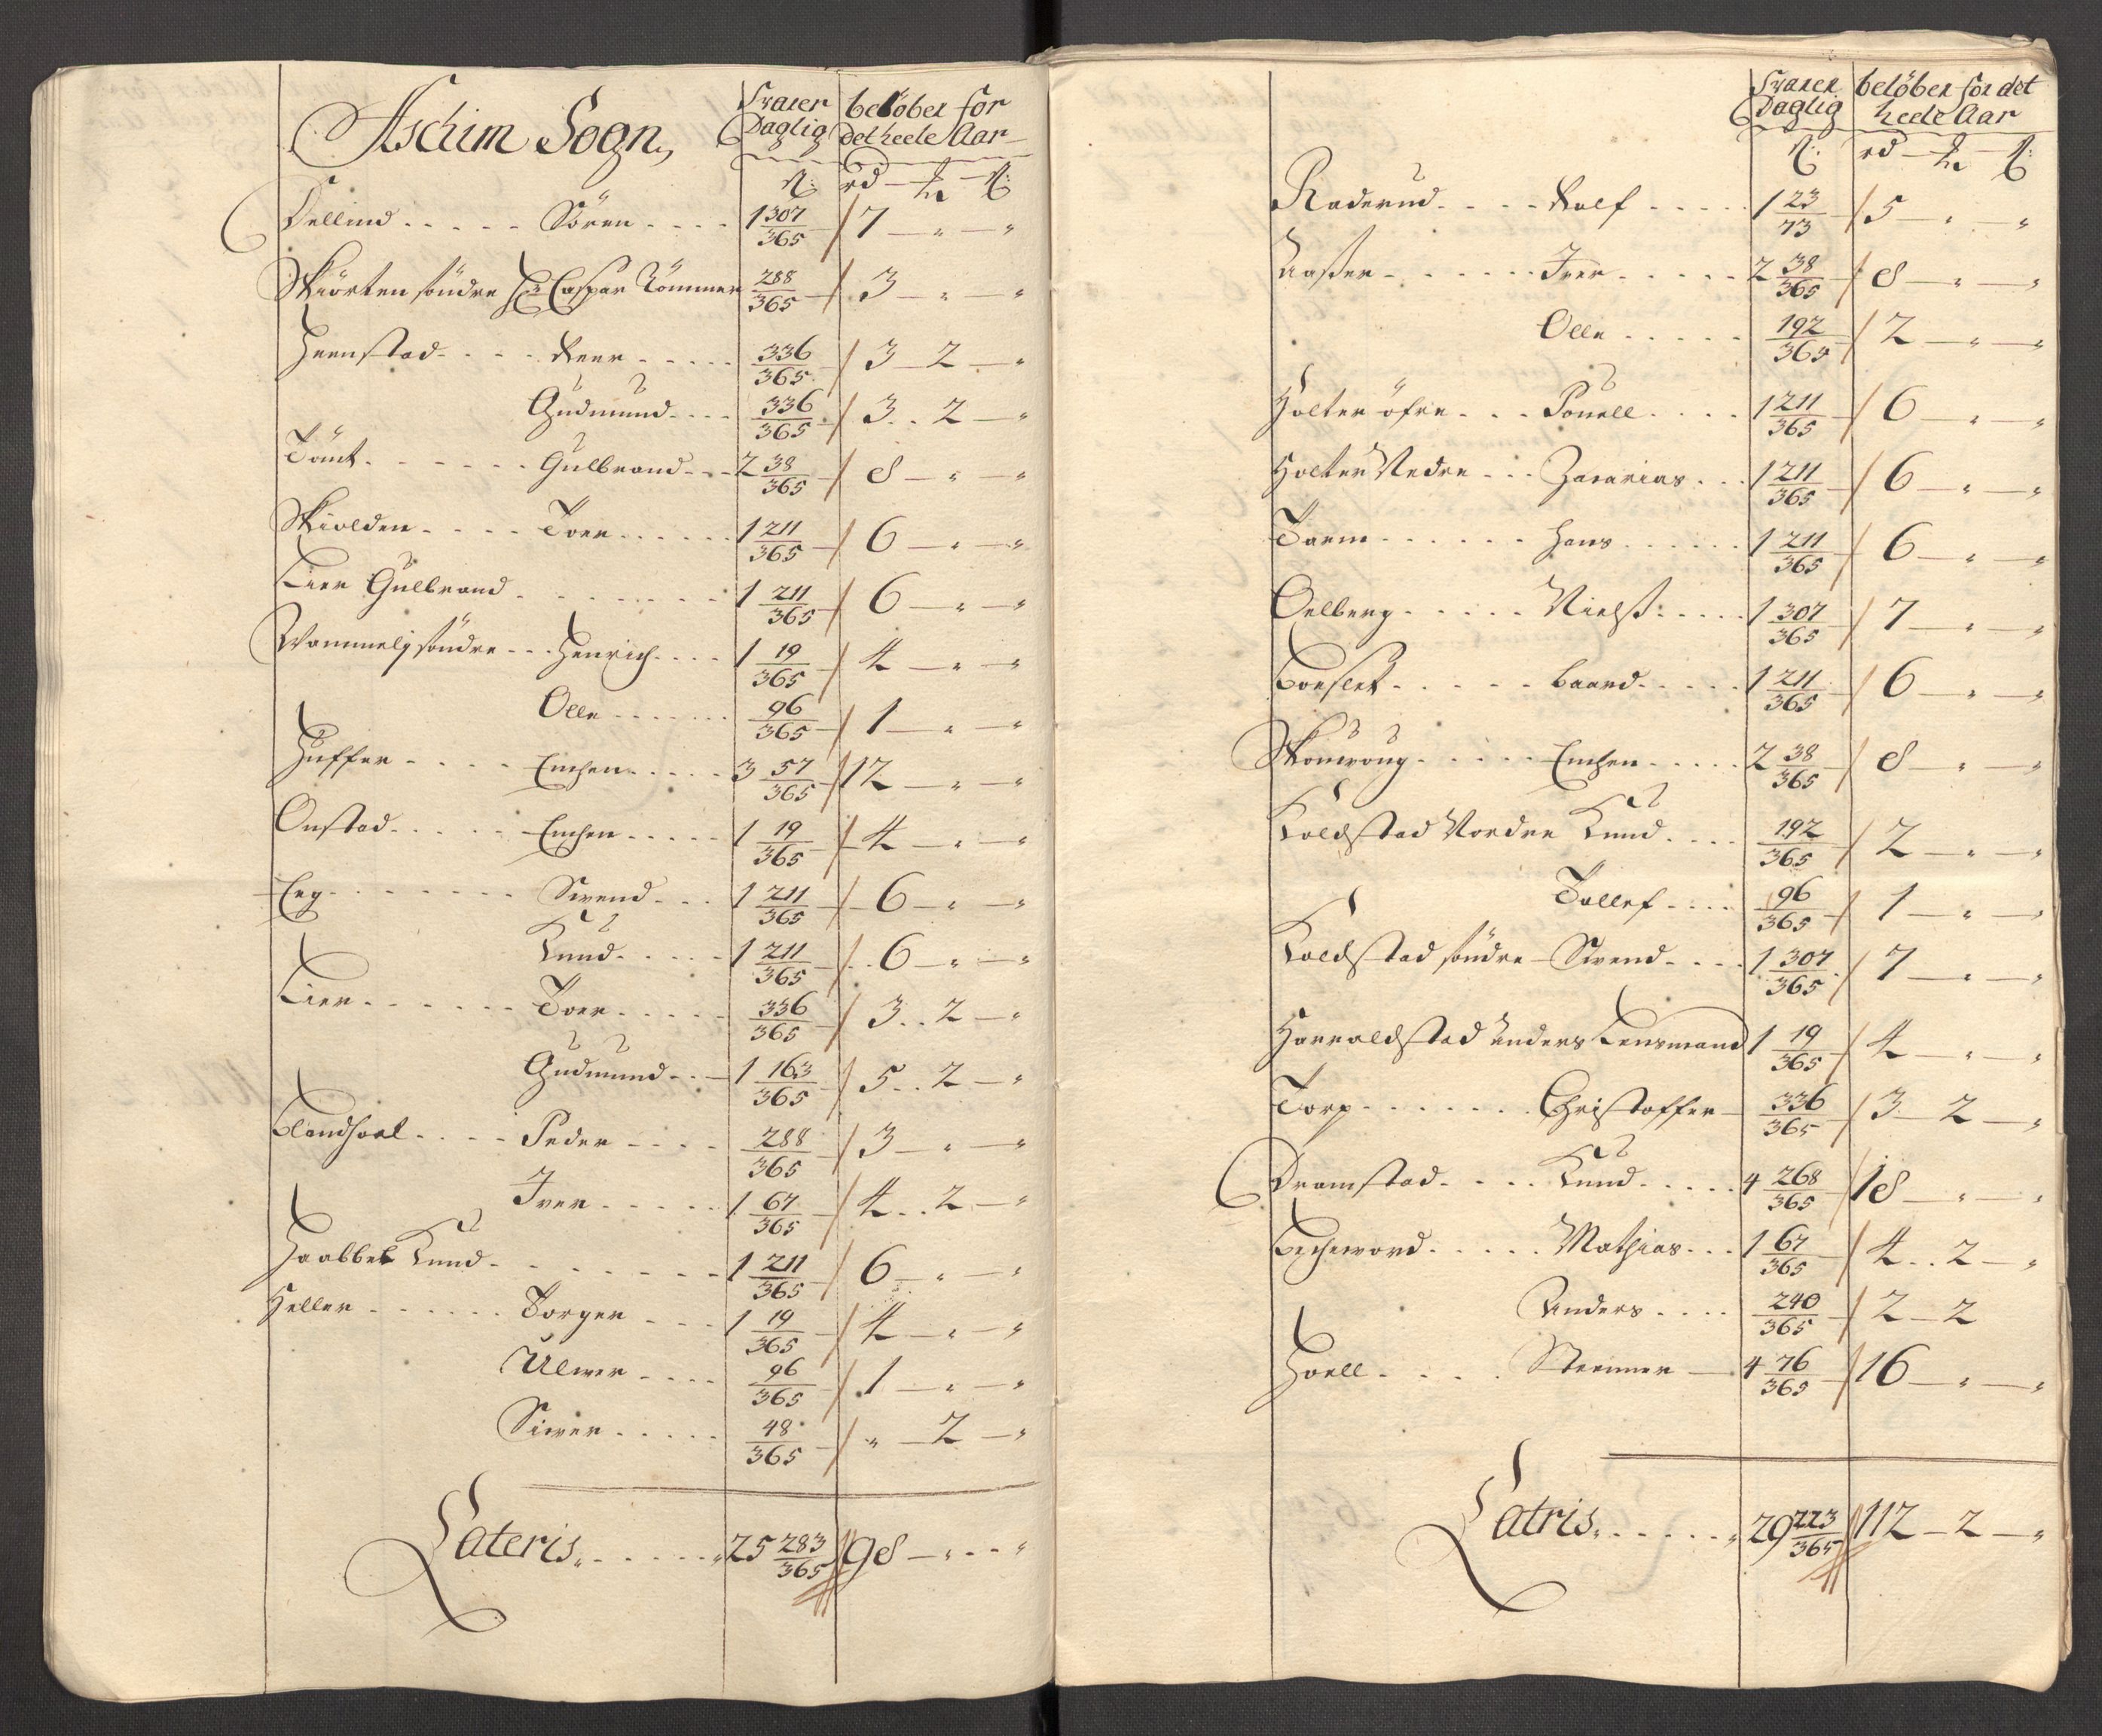 Aschim Sogn,
Svarer Daglig
belöber for det heele Aar
ß: rd — ₰ — ß:
Dellind . . . . . Sören . . . . 1 307/365 / 7 — " — "
Skiörten söndre Hr Caspar Römmer 288/365 / 3 — " — "
Henstad . . . . Reer . . . . . 336/365 / 3 — 2 — "
Gudmund . . . . 336/365 / 3 . . 2 — "
Tömt . . . . . . Gulbrand . . . 2 38/365 / 8 — " — "
Skiolden . . . . Toer . . . . . . 1 211/365 / 6 — " — "
Lier Gulbrand . . . . . . . . 1 211/365 / 6 — " — "
Wammeli söndre . . . Henrich . . . . 1 19/365 / 4 — " — "
Olle . . . . . . . 96/365 / 1 — " — "
Huffer . . . . Enchen . . . . . 3 57/365 / 12 — " — "
Onstad . . . . . Enchen . . . . . 1 19/365 / 4 — " — "
Eeg . . . . . . . . Svend . . . 1 211/365 / 6 — " — "
Knud . . . . . 1 211/365 / . . 6 — " — "
Lier . . . . . . Toer . . . . . 336/365 / 3 . . 2 — "
Gudmund . . — 1 163/365 / 5 . . 2 — "
Glendhoel . . . . Peder . . . . 288/365 / 3 — " — "
Iver . . . . . 1 67/365 / 4 . . 2 — "
Haabbel Knud . . . . . . . . . 1 211/365 / 6 — " — "
Heller . . . . . . Torger . . . 1 19/365 / 4 — " — "
Ulver . . . . 96/365 / 1 — " — "
Siver . . . . . 48/365 / " — 2 — "
Lateris . . . . . . " 25 283/365 // 98 — " . . "
Svarer Daglig
belöber for det heele Aar
ß: rd — ₰ — ß:
Raderud . . . . Rolf . . . . . 1 23/73 / 5 — " — "
Aaser . . . . . . Iver . . . . . 2 38/365 / 8 — " — "
Olle . . . . . 192/365 / 2 — " — "
Holter öfre . . . Pouell . . . . 1 211/365 / 6 — " — "
Holter Nedre . . . Zacarias . . . 1 211/365 / 6 — " — "
Torm . . . . . . Hans . . . . . . 1 211/365 / 6 — " — "
Oelberg . . . . . Nielß . . . . . 1 307/365 / 7 — " — "
Goeslet . . . . . baard . . . . . 1 211/365 / 6 — " — "
Skouroug . . . . . Enchen . . . . . 2 38/365 / 8 — " — "
Koldstad Nordre Knud . . . . 192/365 / 2 — " — "
Tollef . . . . 96/365 / 1 — " — "
Koldstad söndre — Svend . . . . 1 307/365 / 7 — " — "
Harraldstad Anders Lensmand 1 19/365 / 4 — " — "
Torp . . . . . . . Christoffer — 336/365 / 3 — 2 — "
Dramstad . . . . Knud . . . . . 4 268/365 / 18 — " — "
Mathias . . . 1 67/365 / 4 . . 2 — "
Anders . . . . 240/365 / 2 — 2
Hoell . . . . . Steenner — 4 76/365 / 16 — " — "
Latris . . . . . . " 29 223/365 // 112 — 2 — "